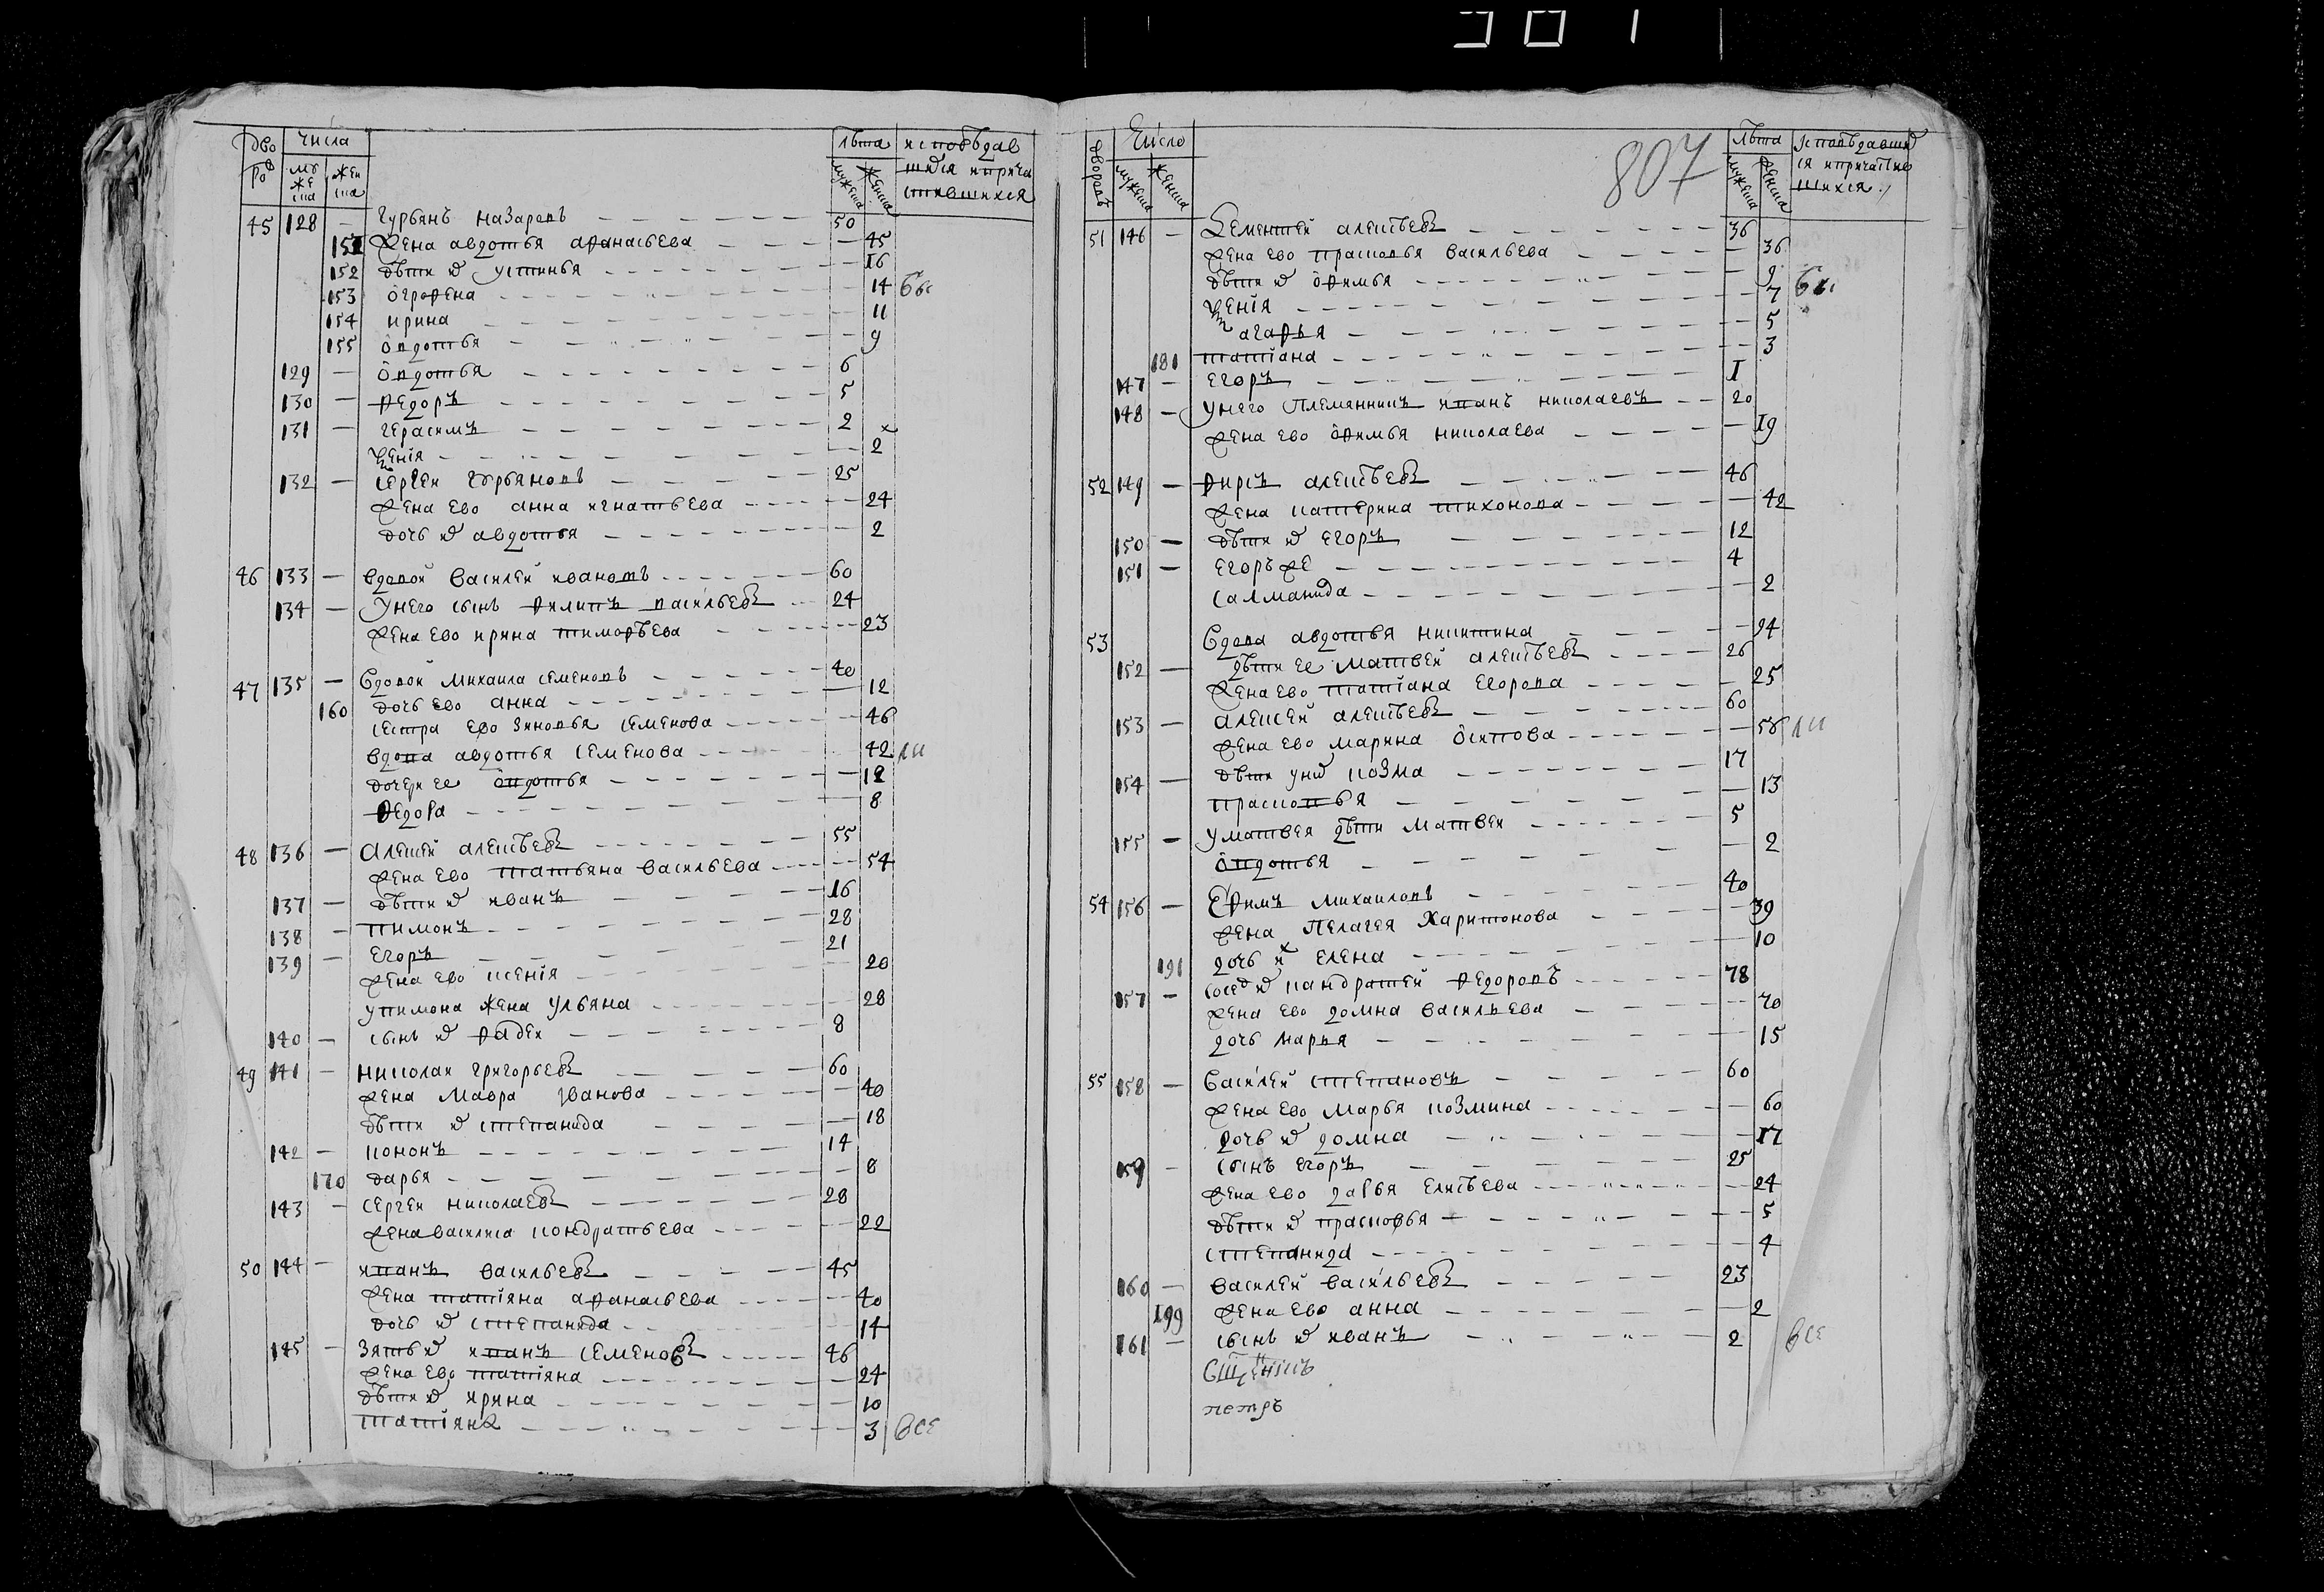 дво числа лѣта исповѣдав
ровъ мужеска женска мужеска женска шихся и прича
стившихся
45 128 — Гурьянъ назаровъ 50
151 жена авдотья афанасьева 45
152 дѣти их устинья 16
153 огрофена 14 всѣ
154 ирина 11
155 овдотья 9
129 — овдотья 6
130 — федоръ 5
131 — герасимъ 2
ксенія 2
132 — сергеи гурьяновъ 25
жена ево анна игнатьева 24
дочь их авдотья 2
46 133 — вдовой василей ивановъ 60
134 — у него сынъ филипъ васильевъ 24
жена ево ирина тимофѣева 23
47 135 — вдовой михаила семеновъ 40
160 дочь ево анна 12
сестра ево зиновья семенова 46
вдова авдотья семенова 42
дочери ее овдотья 12
федора 8
48 136 — алексѣй алексѣевъ 55
жена ево татьяна васильева 54
137 — дѣти их иванъ 16
138 — пимонъ 28
139 — егоръ 21
жена ево ксенія 20
у пимона жена ульяна 28
140 — сынъ их фадеи 8
49 141 — николаи григорьевъ 60
жена мавра иванова 40
дѣти их степанида 18
142 — кононъ 14
170 дарья 8
143 — сергеи николаевъ 28
жена василиса кондратьева 22
50 144 — иванъ васильевъ 45
жена татіяна афанасьева 40
дочь их степанида 14
145 — зять их иванъ семеновъ 46
жена ево татіяна 24
дѣти их ирина 10
татіяна 3 все
807
дворовъ число лѣта исповѣдавших
мужеска женска мужеска женска ся и причастив
шихся
51 146 — Дементей алексѣевъ 36
жена ево прасковья васильева 36
дѣти их офимья 9
ксенія 7 всѣ
агафья 5
181 татіана 3
147 — егоръ 1
148 — у него племянникъ иванъ николаевъ 20
жена ево офимья николаева 19
52 149 — фирсъ алексѣевъ 46
жена катерина тихонова 42
150 — дѣти их егоръ 12
151 — егоръ же 4
саламанида 2
53 вдова авдотья никитина 94
152 — дѣти ее матвеи алексѣевъ 26
жена ево татіана егорова 25
153 — алексеи алексѣевъ 60
жена ево марина осипова 58
154 — дѣти у них козма 17
прасковья 13
155 — у матвея дѣти матвеи 5
овдотья 2
54 156 — ефимъ михаиловъ 40
жена пелагея харитонова 39
191 дочь их елена 10
157 — сосед их кандратей федоровъ 78
жена ево домна васильева 70
дочь марья 15
55 158 — василей степановъ 60
жена ево марья козмина 60
дочь их домна 17
159 — сынъ егоръ 25
жена ево дарья елисѣева 24
дѣти их прасковья 5
степанида 4
160 — василей васильевъ 23
199 жена ево анна 2
161 — сынъ их иванъ 2 все
сщенникъ
петръ